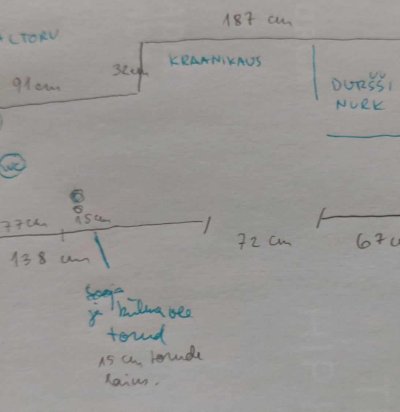 187 cm
ALTORU
91 cm
32cm
KRAANIKAUS
DUŠŠI
NURK
WC
77cm
15cm
138 cm
72 cm
67c
Sooja
ja külma vee
torud
15 cm torude
laius.